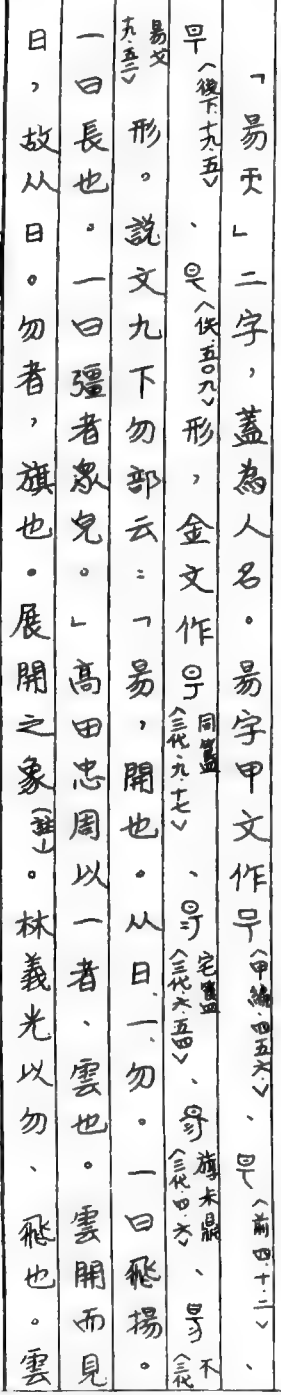 「昜天」二字，蓋為人名。昜字甲文作〈甲編.四五六.〉、〈前四.十.二〉、
〈後下.十九.五〉、〈佚.五〇九〉形，金文作同簋〈三代.九.十七〉、宅簋〈三代六.五四〉、旂未鼎〈三代.四.六〉、不〈三代
十九.五三〉昜戈形。說文九下勿部云：「昜，開也。从日、一、勿。一曰飛揚。
一曰長也。一曰彊者眾皃。」高田忠周以一者、雲也。雲開而見
日，故从日。勿者，旗也。展開之象(註)。林義光以勿、飛也。雲